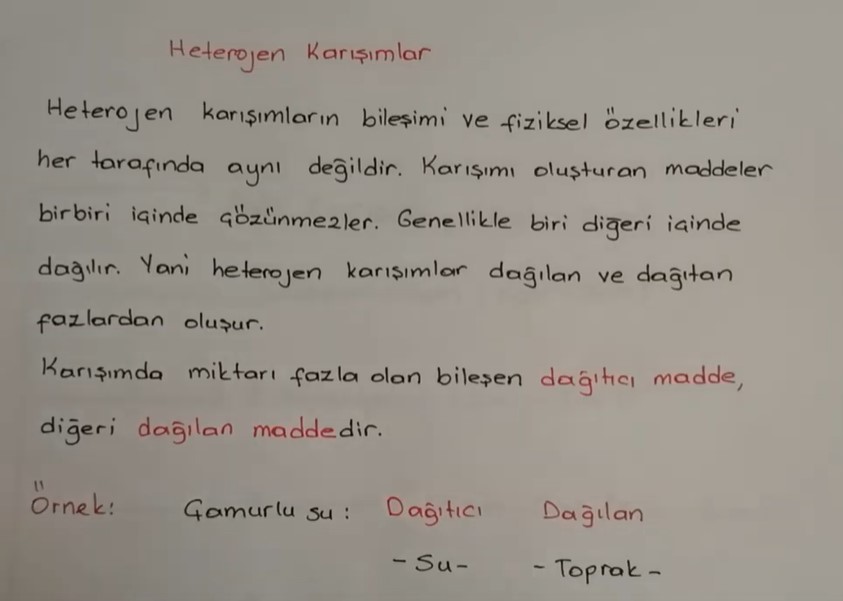 Heterojen Karışımlar
Heterojen karışımların bileşimi ve fiziksel özellikleri
her tarafında aynı değildir. Karışımı oluşturan maddeler
birbiri içinde çözünmezler. Genellikle biri diğeri içinde
dağılır. Yani heterojen karışımlar dağılan ve dağıtan
fazlardan oluşur.
Karışımda miktarı fazla olan bileşen dağıtıcı madde,
diğeri dağılan maddedir.
Örnek: Çamurlu su: Dağıtıcı Dağılan
-Su- -Toprak-